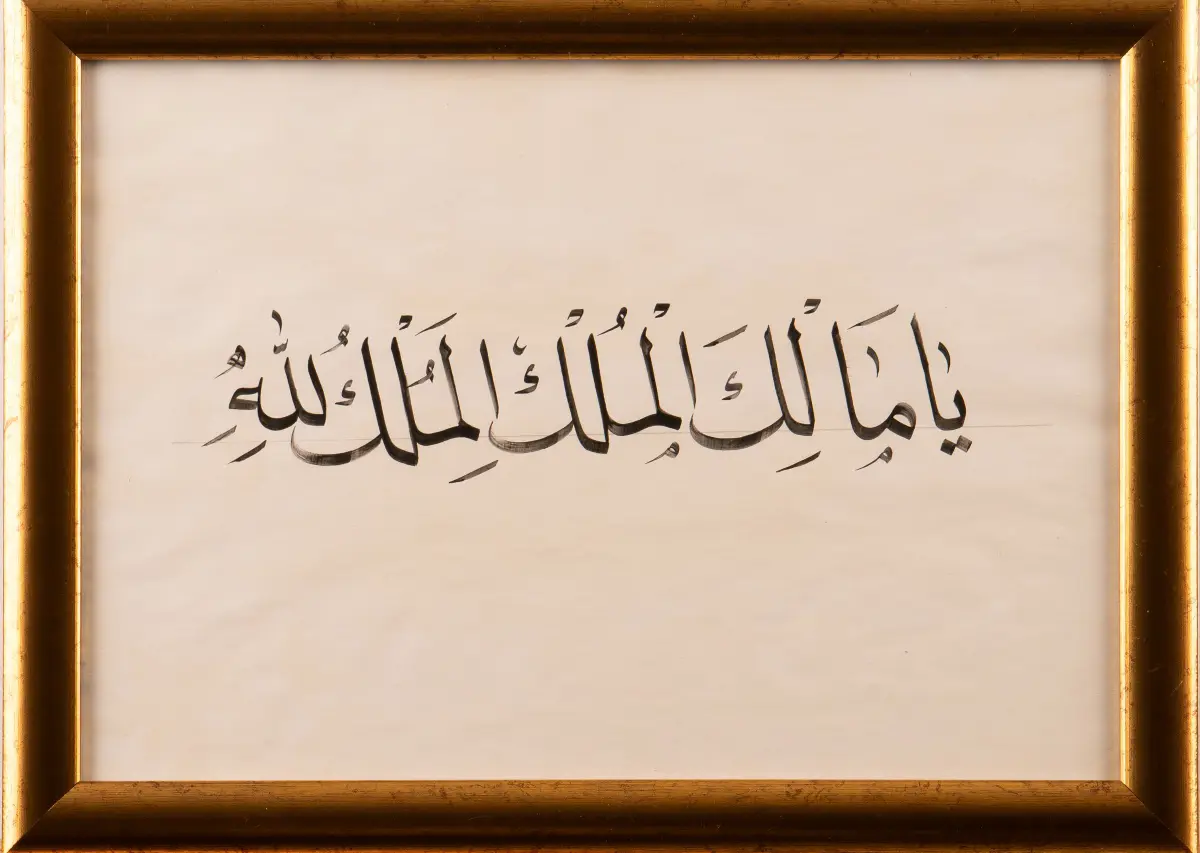 يَا مَالِكَ الْمُلْكِ الْمُلْكُ لِلّٰهِ